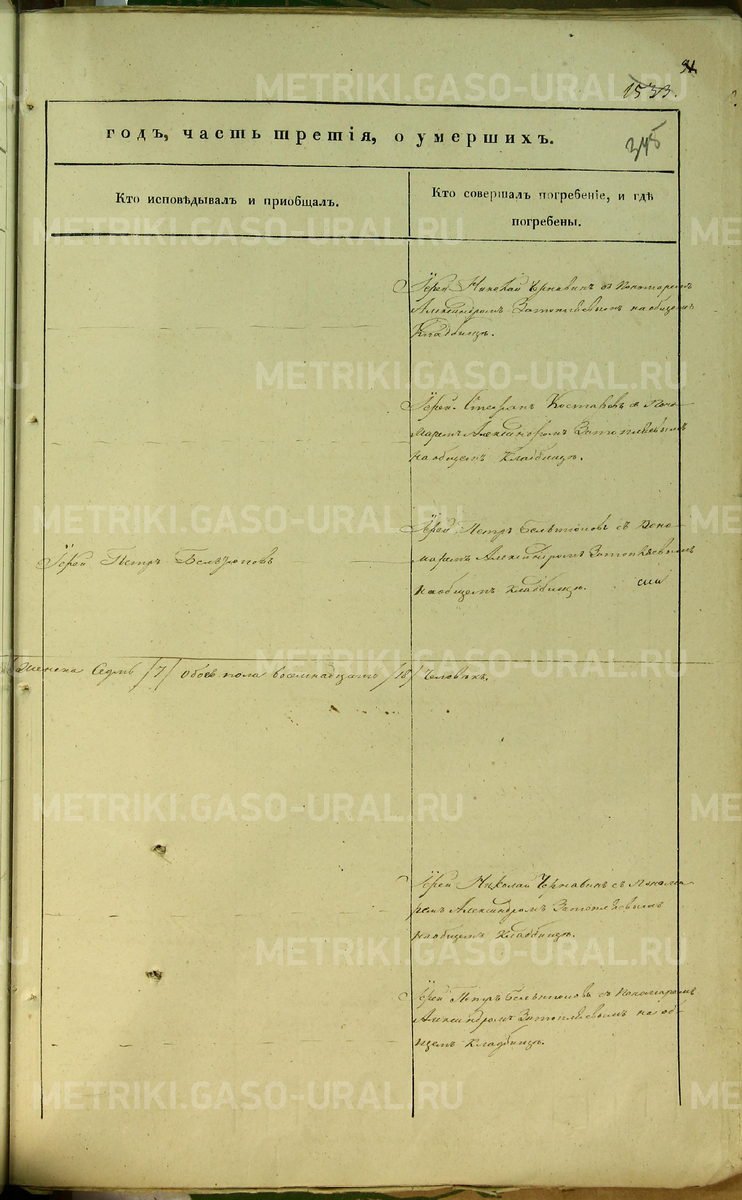 1533.
345
годъ, часть третія, о умершихъ.
Кто исповѣдывалъ и приобщалъ.
Кто совершалъ погребеніе, и гдѣ
погребены.
Іерей Николай Чернавинъ съ Пономаремъ
Александромъ на общемъ
Кладбищѣ.
Іерей Стефанъ Костаковъ съ Поно-
маремъ Александромъ
на общемъ Кладбищѣ.
Іерей Петръ Бельтюковъ
Іерей Петръ Бельтюковъ съ Поно-
маремъ Александромъ
на общемъ кладбищѣ.
Женска Седмь /7/ Обоего пола восемнадцать /18/ Человѣкъ.
Іерей Николай Чернавинъ съ Понома-
ремъ Александромъ
на общемъ Кладбищѣ.
Іерей Петръ Бельтюковъ съ Пономаремъ
Александромъ на об-
щемъ Кладбищѣ.
METRIKI.GASO-URAL.RU